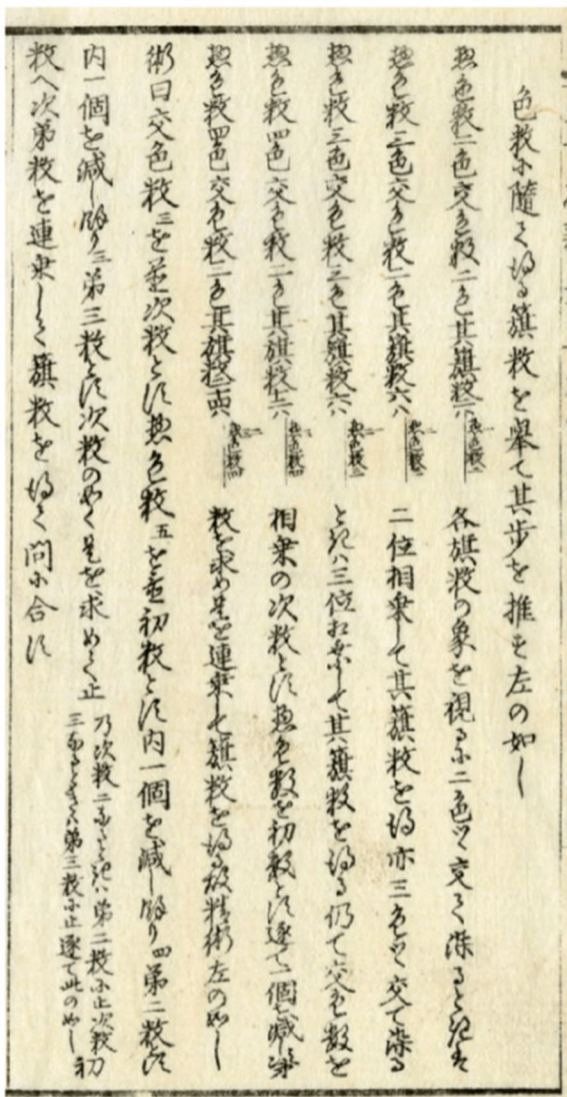 色数に隨て得る籏数を挙て其歩を推す左の如し
惣色数二色交色数二色其籏数二ハ 惣色数二 各旗数の象を視るに二色つゝ交て染るときは
惣色数三色交色数二色其籏数六ハ 惣色数三 二位相乗して其籏数を得亦三色つゝ交て染る
惣色数三色交色数三色其籏数六ハ 惣色数三 ときハ三位相乗して其籏数を得る仍て交色数を
惣色数四色交色数二色其籏数十二ハ 惣色数四 相乗の次数とす惣色数を初数とす逐て一個を減し
惣色数四色交色数三色其籏数ハ 惣色数四 数を求め是を連乗して籏数を得る故精術左の如し
術曰交色数三を置次数とす惣色数五を置初数とす内一個を減し餘り四第二数とす
内一個を減し餘り三第三数とす次数の如く是を求めて止
乃次数二なるときハ第二数に止次数
三なるときハ第三数に止逐て此の如し初
数へ次第数を連乗して籏数を得て問に合す